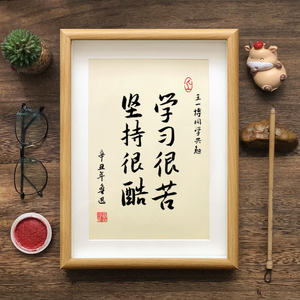 王一博同学共勉
学习很苦
坚持很酷
辛丑年鲁迅